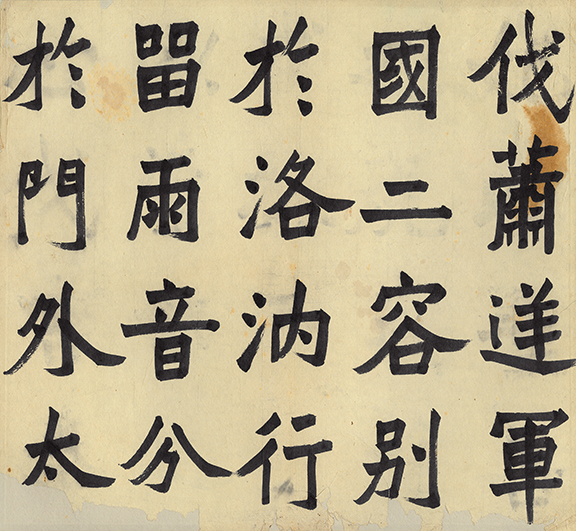 伐蕭逆軍
國二容別
於洛汭行
㽞雨音分
於門外太